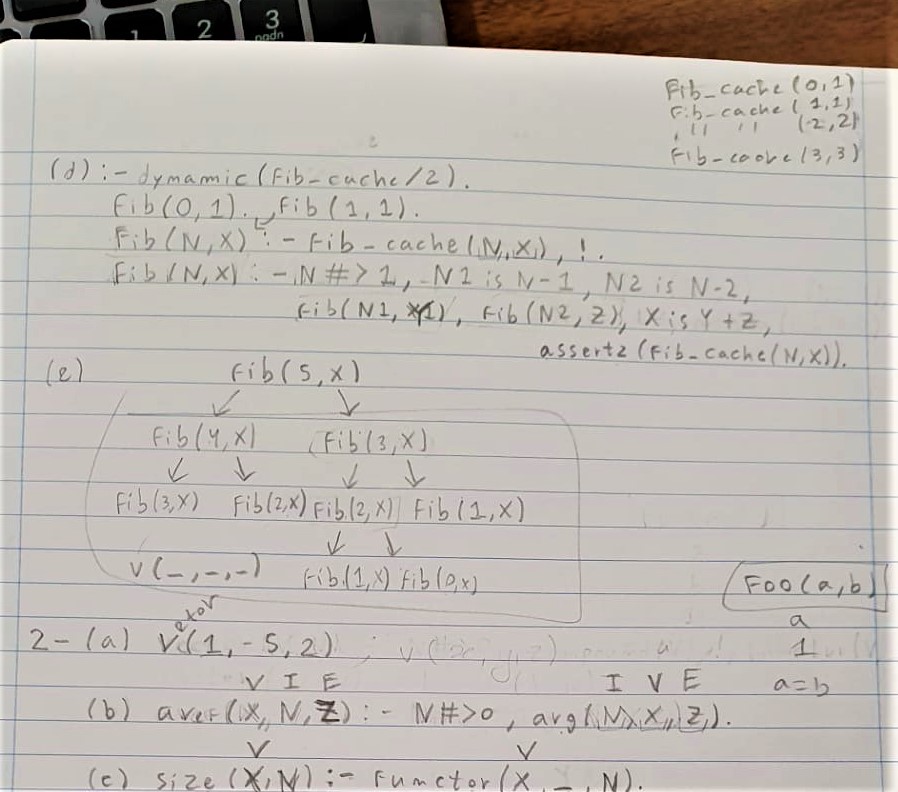 1 2 3
pgdn
Fib_cache(0,1)
Fib_cache(1,1)
" " (2,2)
Fib_cache(3,3)
(d) :- dynamic(Fib_cache/2).
Fib(0,1). Fib(1,1).
Fib(N,X) :- Fib_cache(N,X), !.
Fib(N,X) :- N #> 1, N1 is N-1, N2 is N-2,
Fib(N1, Y), Fib(N2, Z), X is Y+Z,
assertz(Fib_cache(N,X)).
(e) Fib(5,X)
Fib(4,X) Fib(3,X)
Fib(3,X) Fib(2,X) Fib(2,X) Fib(1,X)
v(_,_,_) Fib(1,X) Fib(0,X)
Foo(a,b)
a
1
a=b
2-(a) v(1,-5,2)
V I E I V E
(b) aref(X,N,Z) :- N#>0, arg(N,X,Z).
V V
(c) size(X,N) :- functor(X,_,N).